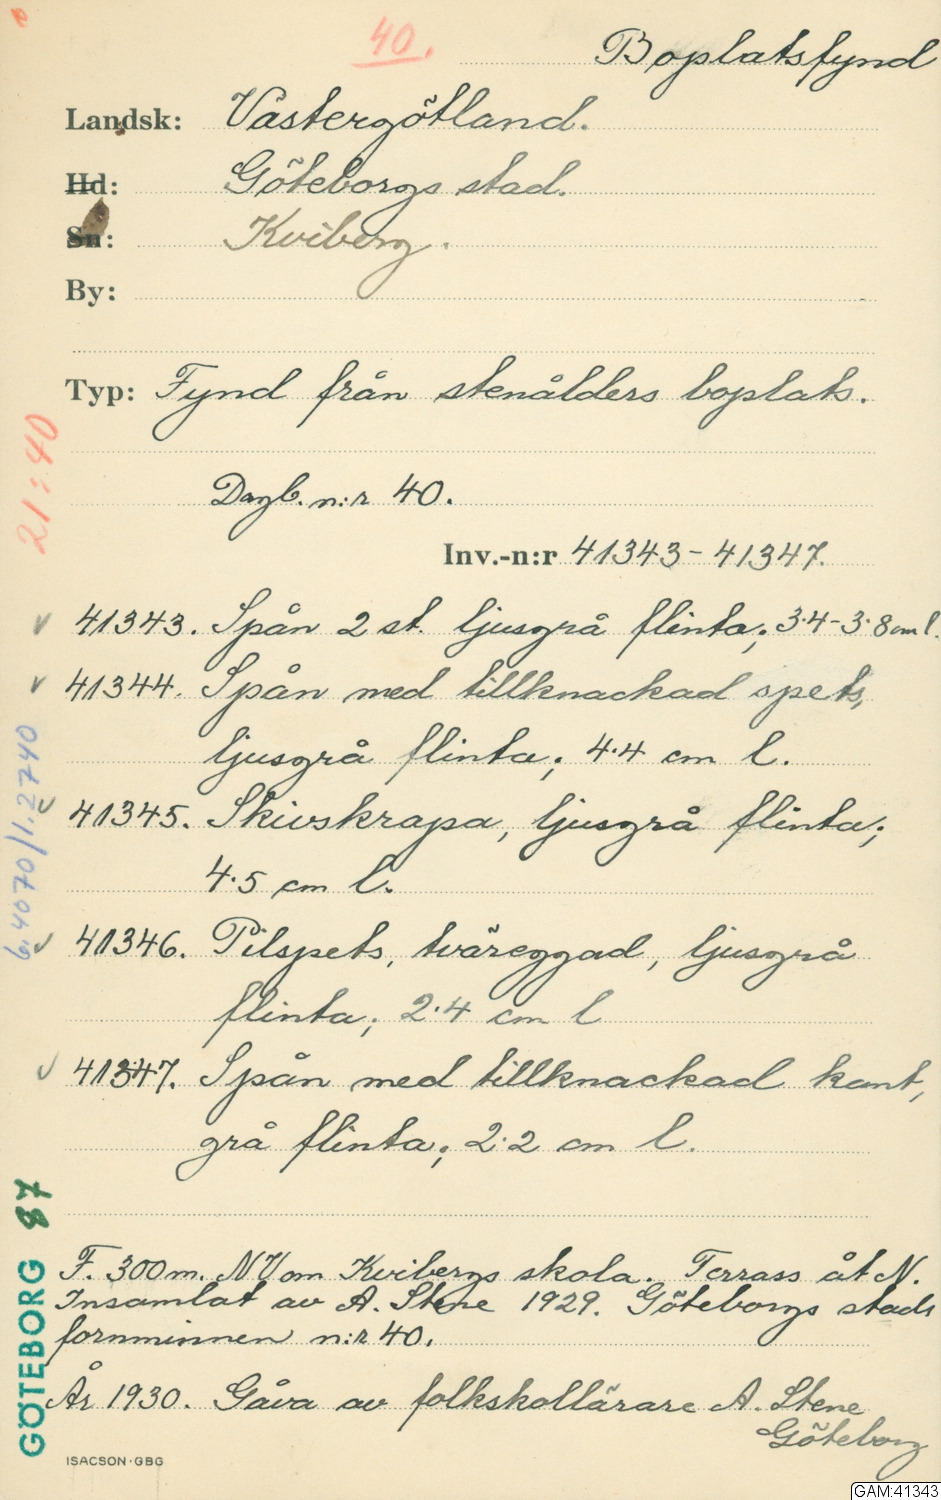 40.
Boplatsfynd
Landsk: Västergötland.
Hd: Göteborgs stad.
Sn: Kviberg.
By:
Typ: Fynd från stenålders boplats.
21:40
Dagb. n:r 40.
Inv.-n:r 41343-41347.
v 41343. Spån 2 st. ljusgrå flinta; 3.4-3.8 cm l.
v 41344. Spån med tillknackad spets,
ljusgrå flinta; 4.4 cm l.
v 41345. Skivskrapa, ljusgrå flinta;
4.5 cm l.
6.4070/1.2740
v 41346. Pilspets, tväreggad, ljusgrå
flinta; 2.4 cm l
v 41347. Spån med tillknackad kant,
grå flinta; 2.2 cm l.
GÖTEBORG 87
F. 300 m. NV om Kvibergs skola. Terrass åt N.
Insamlat av A. Stene 1929. Göteborgs stads
fornminnen n:r 40.
År 1930. Gåva av folkskollärare A. Stene
Göteborg
ISACSON·GBG
GAM:41343